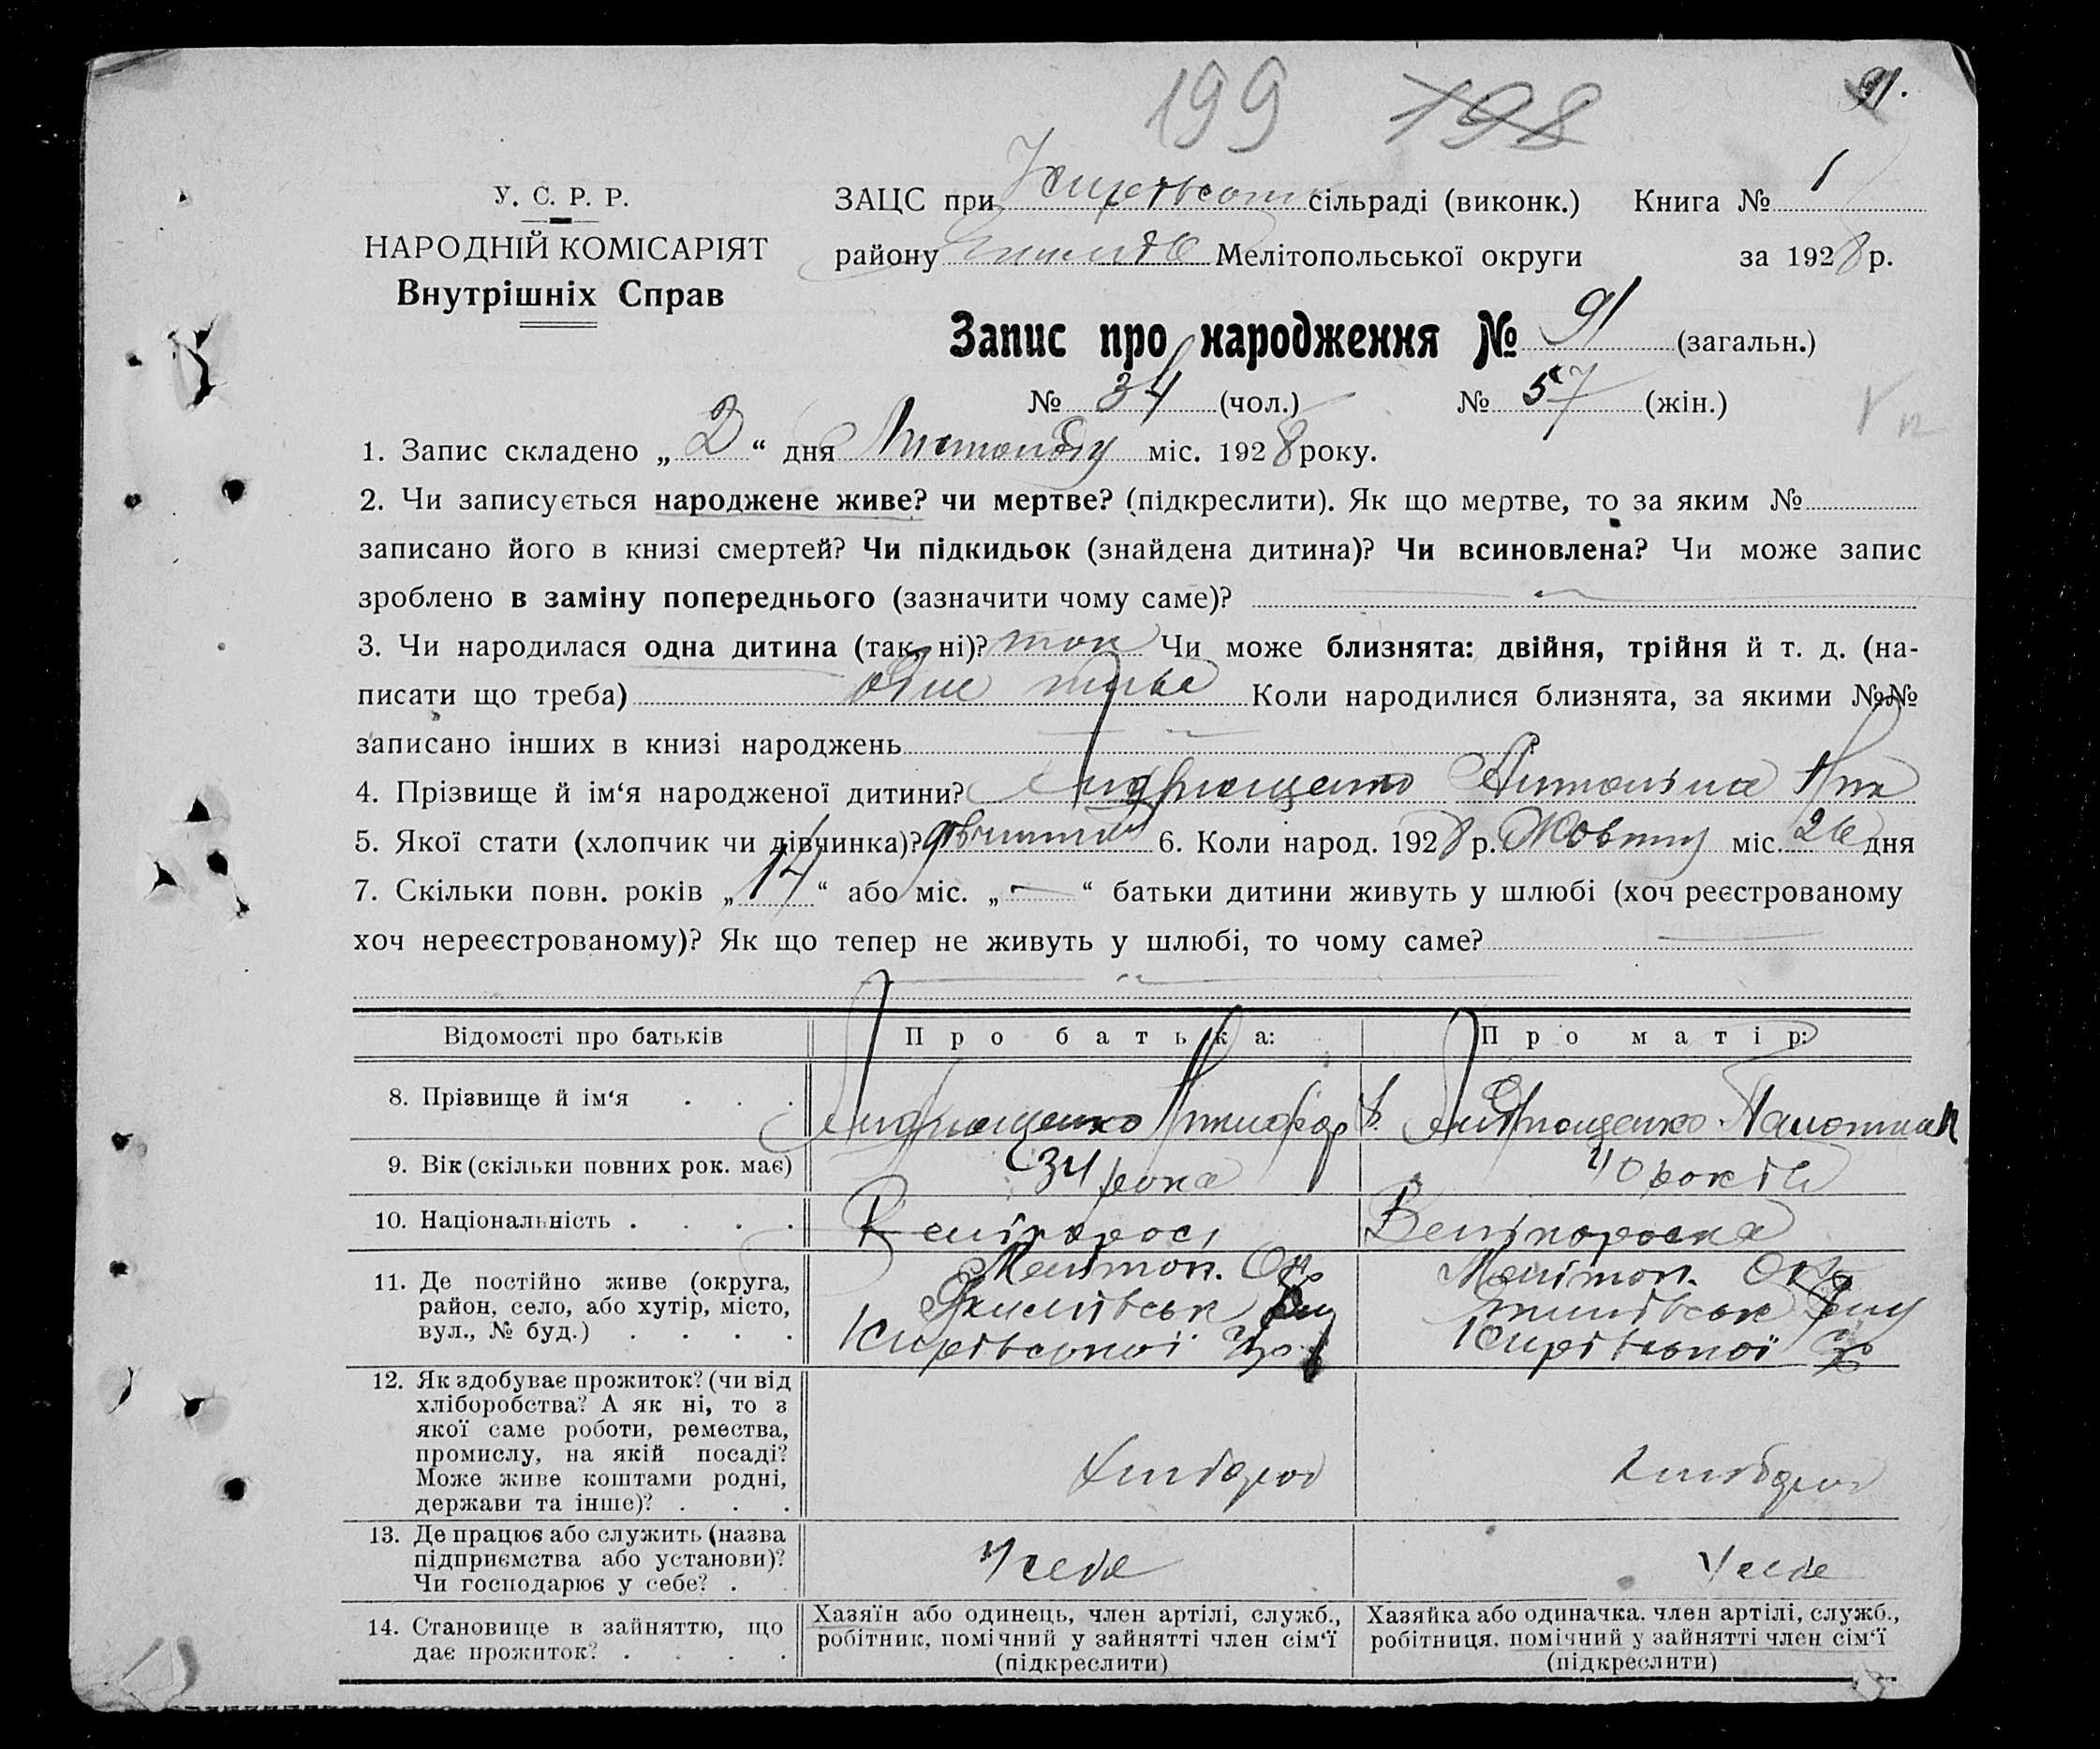 199 198 91.
У. С. Р. Р.
НАРОДНІЙ КОМІСАРІЯТ
Внутрішніх Справ
ЗАЦС при Кирівськ сільраді (виконк.) Книга № 1
району Мелітопольської округи за 1928 р.
Запис про народження № 91 (загальн.)
№ 34 (чол.) № 57 (жін.)
1. Запис складено „ 2 “ дня Листопаду міс. 1928 року.
2. Чи записується народжене живе? чи мертве? (підкреслити). Як що мертве, то за яким №
записано його в книзі смертей? Чи підкидьок (знайдена дитина)? Чи всиновлена? Чи може запис
зроблено в заміну попереднього (зазначити чому саме)?
3. Чи народилася одна дитина (так, ні)? так Чи може близнята: двійня, трійня й т. д. (на-
писати що треба) Коли народилися близнята, за якими №№
записано інших в книзі народжень
4. Прізвище й ім‘я народженої дитини? Андрющенко Антоніна
5. Якої стати (хлопчик чи дівчинка)? дівчинка 6. Коли народ. 1928 р. Жовтня міс. 26 дня
7. Скільки повн. років „ 14 “ або міс. „ — “ батьки дитини живуть у шлюбі (хоч реєстрованому
хоч нереєстрованому)? Як що тепер не живуть у шлюбі, то чому саме?
Відомості про батьків
Про батька:
Про матір:
8. Прізвище й ім‘я . . .
Андрющенко
Андрющенко
9. Вік (скільки повних рок. має)
34 рока
40 років
10. Національність . . . .
Великорос
Великороска
11. Де постійно живе (округа,
район, село, або хутір, місто,
вул., № буд.) . . . .
Мелітоп. Окр
Якимівськ
Кирівської
Мелітоп. Окр
Якимівськ
Кирівської
12. Як здобуває прожиток? (чи від
хліборобства? А як ні, то з
якої саме роботи, ремества,
промислу, на якій посаді?
Може живе коштами родні,
держави та інше)? . . .
Хлібороб
Хлібороб
13. Де працює або служить (назва
підприємства або установи)?
Чи господарює у себе? .
У себе
У себе
14. Становище в зайняттю, що
дає прожиток? . . . .
Хазяїн або одинець, член артілі, служб.,
робітник, помічний у зайнятті член сім‘ї
(підкреслити)
Хазяйка або одиначка. член артілі, служб.,
робітниця. помічний у зайнятті член сім‘ї
(підкреслити)